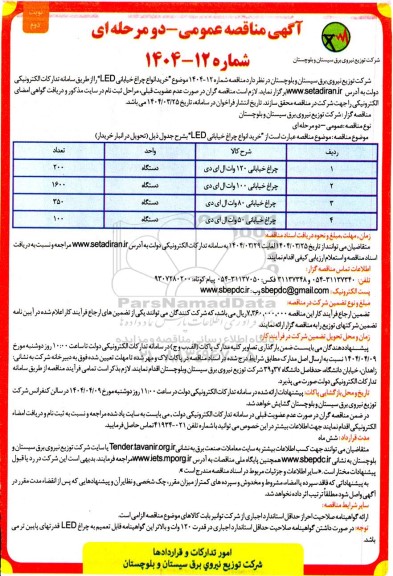 نوبت دوم
آگهی مناقصه عمومی-دو مرحله ای
شماره ۱۲-۱۴۰۴
شرکت توزیع نیروی برق سیستان و بلوچستان
شرکت توزیع نیروی برق سیستان و بلوچستان در نظر دارد مناقصه شماره ۱۲-۱۴۰۴ موضوع "خرید انواع چراغ خیابانی LED" را از طریق سامانه تدارکات الکترونیکی
دولت به آدرس www.setadiran.ir برگزار نماید. لازم است مناقصه گران در صورت عدم عضویت قبلی، مراحل ثبت نام در سایت مذکور و دریافت گواهی امضای
الکترونیکی را جهت شرکت در مناقصه محقق سازند. تاریخ انتشار فراخوان در سامانه، تاریخ ۱۴۰۴/۰۳/۲۵ می باشد.
مناقصه گزار: شرکت توزیع نیروی برق سیستان و بلوچستان
نوع مناقصه: عمومی-دو مرحله ای
موضوع مناقصه: موضوع مناقصه عبارت است از "خرید انواع چراغ خیابانی LED" بشرح جدول ذیل (تحویل در انبار خریدار)
ردیف شرح کالا واحد تعداد
۱ چراغ خیابانی ۱۲۰ وات ال ای دی دستگاه ۲۰۰
۲ چراغ خیابانی ۱۰۰ وات ال ای دی دستگاه ۱۶۰۰
۳ چراغ خیابانی ۸۰ وات ال ای دی دستگاه ۳۵۰
۴ چراغ خیابانی ۵۰ وات ال ای دی دستگاه ۱۰۰
زمان، مهلت، مبلغ و نحوه دریافت اسناد مناقصه:
متقاضیان می توانند از تاریخ ۱۴۰۴/۰۳/۲۵ لغایت ۱۴۰۴/۰۳/۲۹ به سامانه تدارکات الکترونیکی دولت به آدرس www.setadiran.ir مراجعه و نسبت به دریافت
اسناد مناقصه و استعلام ارزیابی کیفی اقدام نمایند.
اطلاعات تماس مناقصه گزار:
تلفن: ۳۱۱۳۷۳۴۰-۰۵۴ و ۳۱۱۳۷۳۴۸ فکس: ۳۱۱۳۷۰۵۰-۰۵۴ پیام کوتاه: ۹۳۰۷۲۸۰۲۰۰
پست الکترونیک: sbepdc@gmail.com وب: www.sbepdc.ir
مبلغ و نوع تضمین شرکت در مناقصه:
تضمین ارجاع فرآیند کار این مناقصه ۷,۳۶۰,۰۰۰,۰۰۰ ریال می باشد، که شرکت کنندگان می توانند یکی از تضمین های ارجاع فرآیند کار اعلام شده در آیین نامه
تضمین شرکتهای توزیع را به مناقصه گزار ارائه نمایند.
زمان و محل تحویل تضمین شرکت در فرآیند کار:
پیشنهاددهندگان می بایست ضمن بارگذاری تصاویر کلیه مدارک پاکات (الف، ب و ج) در سامانه تدارکات الکترونیکی دولت تا ساعت ۱۰:۰۰ روز دوشنبه مورخ
۱۴۰۴/۰۴/۰۹ نسبت به ارسال اصل مدارک مطابق شرایط درج شده در اسناد مناقصه در پاکات لاک و مهر شده تا مهلت تعیین شده فوق به دبیرخانه شرکت به نشانی:
زاهدان، خیابان دانشگاه، حدفاصل دانشگاه ۳۷ و ۳۹ شرکت توزیع نیروی برق سیستان و بلوچستان اقدام نمایند. لازم بذکر است تمامی فرآیند مناقصه از طریق سامانه
تدارکات الکترونیکی دولت صورت می پذیرد.
تاریخ و محل بازگشایی پاکات: پیشنهادات ارائه شده در سامانه تدارکات الکترونیکی دولت در ساعت ۱۱:۰۰ روز دوشنبه مورخ ۱۴۰۴/۰۴/۰۹ در سالن کنفرانس شرکت
توزیع نیروی برق سیستان و بلوچستان گشایش خواهد شد.
در ضمن مناقصه گران در صورت عدم عضویت قبلی در سامانه تدارکات الکترونیکی دولت، می بایست به سایت یاد شده مراجعه و نسبت به ثبت نام و دریافت امضاء
الکترونیکی اقدام نمایند جهت اطلاعات بیشتر در این خصوص می توانید با شماره تلفن ۴۱۹۳۴-۰۲۱ تماس حاصل فرمایید.
مدت قرارداد: شش ماه
متقاضیان می توانند جهت کسب اطلاعات بیشتر به سایت معاملات صنعت برق به نشانی Tender.tavanir.org.ir یا سایت شرکت توزیع نیروی برق سیستان و
بلوچستان به نشانی www.sbepdc.ir و همچنین پایگاه ملی مناقصات به آدرس www.iets.mporg.ir مراجعه فرمایند. بدیهی است این شرکت در رد یا قبول
پیشنهادات مختار است. "سایر اطلاعات و جزئیات مربوط در اسناد مناقصه مندرج است".
به پیشنهاداتی که فاقد سپرده یا امضاء، مشروط و مخدوش و سپرده های کمتر از میزان مقرر، چک شخصی و نظایر آن و پیشنهادهایی که پس از انقضاء مدت مقرر در
آگهی واصل شود مطلقاً ترتیب اثر داده نخواهد شد.
سایر شرایط مناقصه:
ارائه گواهینامه صلاحیت احراز حداقل استاندارد اجباری از شرکت توانیر بابت کالاهای موضوع مناقصه الزامی است.
توجه: در صورت داشتن گواهینامه صلاحیت حداقل استاندارد اجباری در قدرت ۱۲۰ وات و بالاتر این گواهینامه قابل تعمیم به چراغ LED قدرتهای پایین تر می
باشد.
امور تدارکات و قراردادها
شرکت توزیع نیروی برق سیستان و بلوچستان